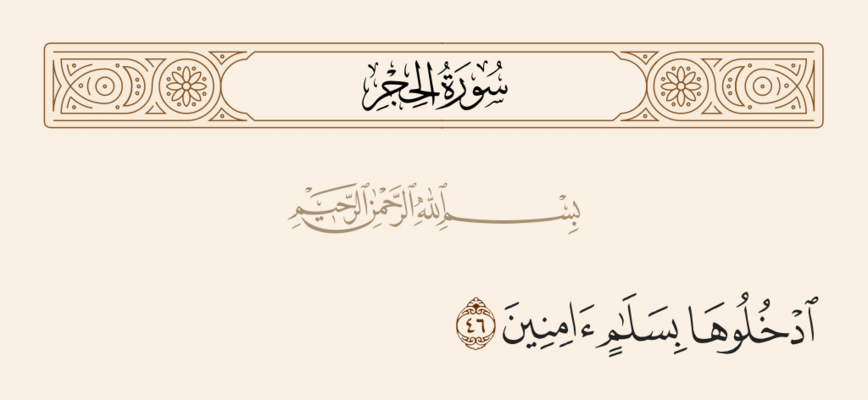 سُورَةُ الحِجْرِ
بِسْمِ ٱللَّهِ ٱلرَّحْمَٰنِ ٱلرَّحِيمِ
ٱدْخُلُوهَا بِسَلَٰمٍ ءَامِنِينَ ٤٦